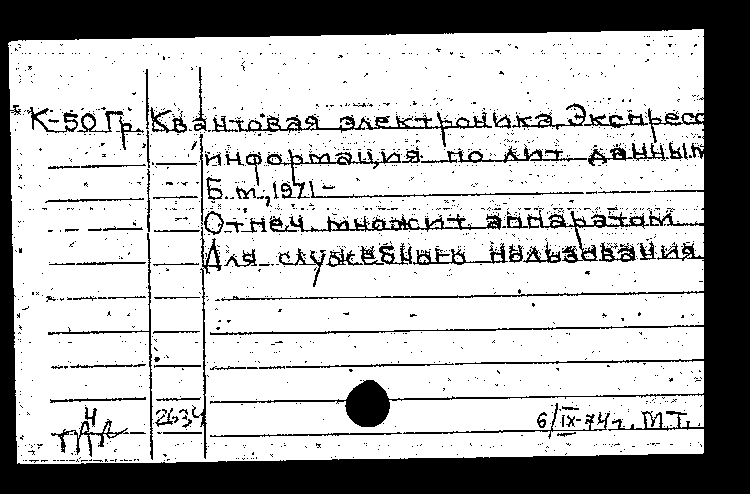 К-50 Гр. Квантовая электроника. Экспресс
информация по лит. данным
Б. м., 1971 -
Отпеч. множит. аппаратом
Для служебного пользования.
4
2634 6/IX-74 г. М.Т.